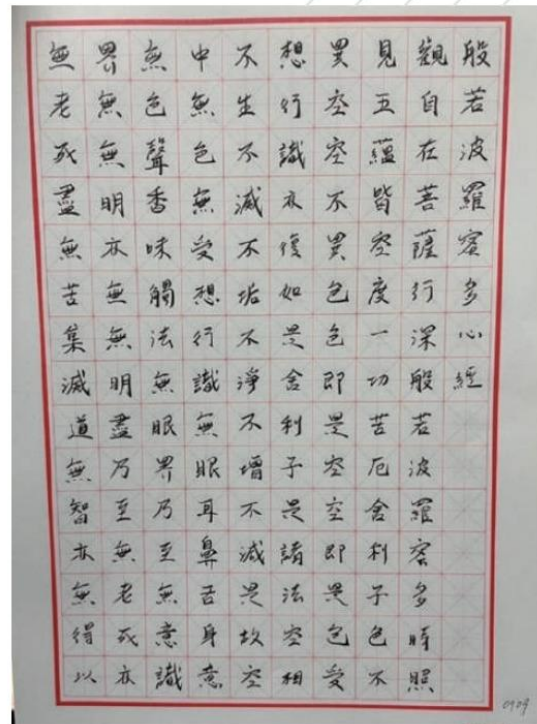 般若波羅蜜多心經
觀自在菩薩行深般若波羅蜜多時照
見五蘊皆空度一切苦厄舍利子色不
異空空不異色色即是空空即是色受
想行識亦復如是舍利子是諸法空相
不生不滅不垢不淨不增不減是故空
中無色無受想行識無眼耳鼻舌身意
無色聲香味觸法無眼界乃至無意識
界無無明亦無無明盡乃至無老死亦
無老死盡無苦集滅道無智亦無得以
0909